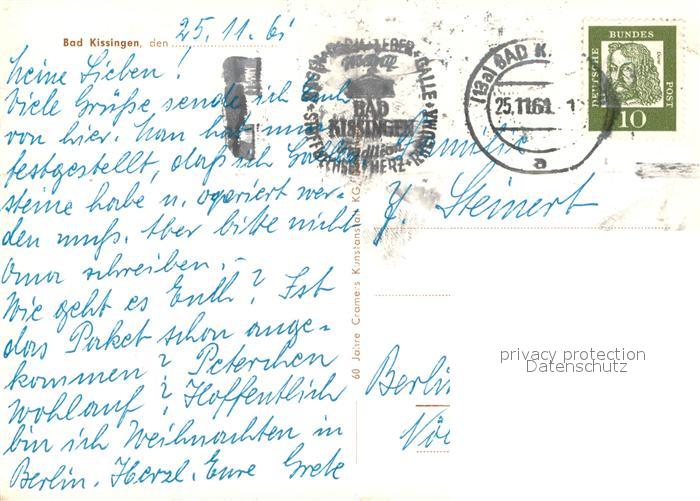 Bad Kissingen, den 25.11.61
Meine Lieben!
Viele Grüße sende ich Euch
von hier. Man hat nun
festgestellt, daß ich Gallen
steine habe u. operiert wer-
den muß. Aber bitte nicht
Oma schreiben.-
Wie geht es Euch? Ist
das Paket schon ange-
kommen? Peterchen
wohlauf? Hoffentlich
bin ich Weihnachten in
Berlin. Herzl. Eure Grete
60 Jahre Cramers Kunstanstalt KG,
LEBER · GALLE
BAD
KISSINGEN
HERZ
(13a) BAD K.
25.11.61
a
DEUTSCHE BUNDES POST
10
Familie
J. Steinert
Berlin
privacy protection
Datenschutz